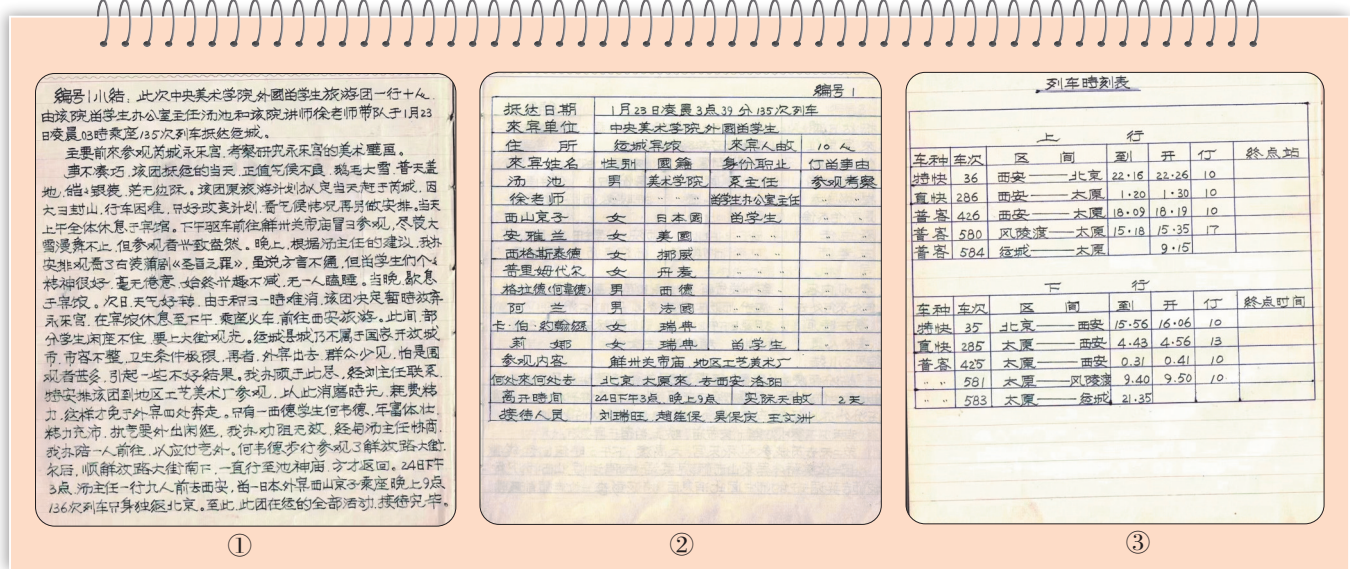 编号1小结：此次中央美术学院外國畄学生旅游团一行十人，
由该院畄学生办公室主任汤池和该院讲师徐老师带队于1月23
日凌晨03時乘座135次列车抵达运城。
主要前來参观芮城永乐宫，考察研究永乐宫的美术壁画。
事不凑巧，该团抵运的当天，正值气候不良，鹅毛大雪，普天盖
地，皑皑银装，茫无边际。该团原旅游计划拟定当天赴于芮城，因
大彐封山，行车困难，只好改变计划，看气候情况再另做安排。当天
上午全体休息于宾馆。下午驱车前往解州关帝庙冒彐参观，尽管大
雪漫舞不止，但参观者兴致盎然。晚上，根据汤主任的建议，我办
安排观看了古装蒲剧《圣旨之罪》，虽说方言不通，但畄学生们个个
精神很好，毫无倦意，始终兴趣不减，无一人瞌睡。当晚，歇息
于宾馆。次日，天气好转，由于积彐一時难消，该团决定暂時放弃
永乐宫，在宾馆休息至下午，乘座火车，前往西安旅游。此间，部
分学生闲座不住，要上大街观光。运城县城乃不属于国家开放城
市，市容不整，卫生条件极限，再者，外宾出去，群众少见，怕是围
观者甚多，引起一些不好结果。我办顾于此患，经刘主任联系，
特安排该团到地区工艺美术厂参观，以此消磨時光，耗费精
力，这样才免于外宾四处奔走。只有一西德学生何韦德，年富体壮，
精力充沛，执气要外出闲逛，我办劝阻无效，经与汤主任协商，
我办陪一人前往，以应付意外。何韦德步行参观了解放路大街，
尔后，顺解放路大街南下，一直行至池神庙，方才返回。24日下午
3点，汤主任一行九人前去西安，畄一日本外宾西山京子乘座晚上9点
136次列车只身独返北京。至此，此团在运的全部活动，接待完毕。
①
编号 1
抵达日期 1月23日凌晨3点39分135次列车
來宾单位 中央美术学院外國畄学生
住 所 运城宾馆 來宾人数 10人
來宾姓名 性别 國籍 身份职业 仃畄事由
汤 池 男 美术学院 系主任 参观考察
徐老师 畄学生办公室主任 〃 〃
西山京子 女 日本國 畄学生 〃 〃
安雅兰 女 美國 〃 〃 〃 〃
西格斯泰德 女 挪威 〃 〃 〃 〃
普里姆代尔 女 丹麦 〃 〃 〃 〃
格拉德(何韋德) 男 西德 〃 〃 〃 〃
阿 兰 男 法國 〃 〃 〃 〃
卡·伯·約翰遜 女 瑞典 〃 〃 〃 〃
莉 娜 女 瑞典 畄学生 〃 〃
参观内容 解州关帝庙 地区工艺美术厂
何处來何处去 北京、太原來，去西安 洛阳
离开時间 24日下午3点，晚上9点 实际天数 2天
接待人员 刘瑞旺、赵莲保、吴保庆、王文洲
②
列车時刻表
上 行
车种 车次 区 间 到 开 仃 終点站
特快 36 西安——北京 22·16 22·26 10
直快 286 西安——太原 1·20 1·30 10
普客 426 西安——太原 18·09 18·19 10
普客 580 风陵渡——太原 15·18 15·35 17
普客 584 运城——太原 9·15
下 行
车种 车次 区 间 到 开 仃 終点时间
特快 35 北京——西安 15·56 16·06 10
直快 285 太原——西安 4·43 4·56 13
普客 425 太原——西安 0.31 0.41 10
〃 〃 581 太原——风陵渡 9.40 9.50 10
〃 〃 583 太原——运城 21·35
③